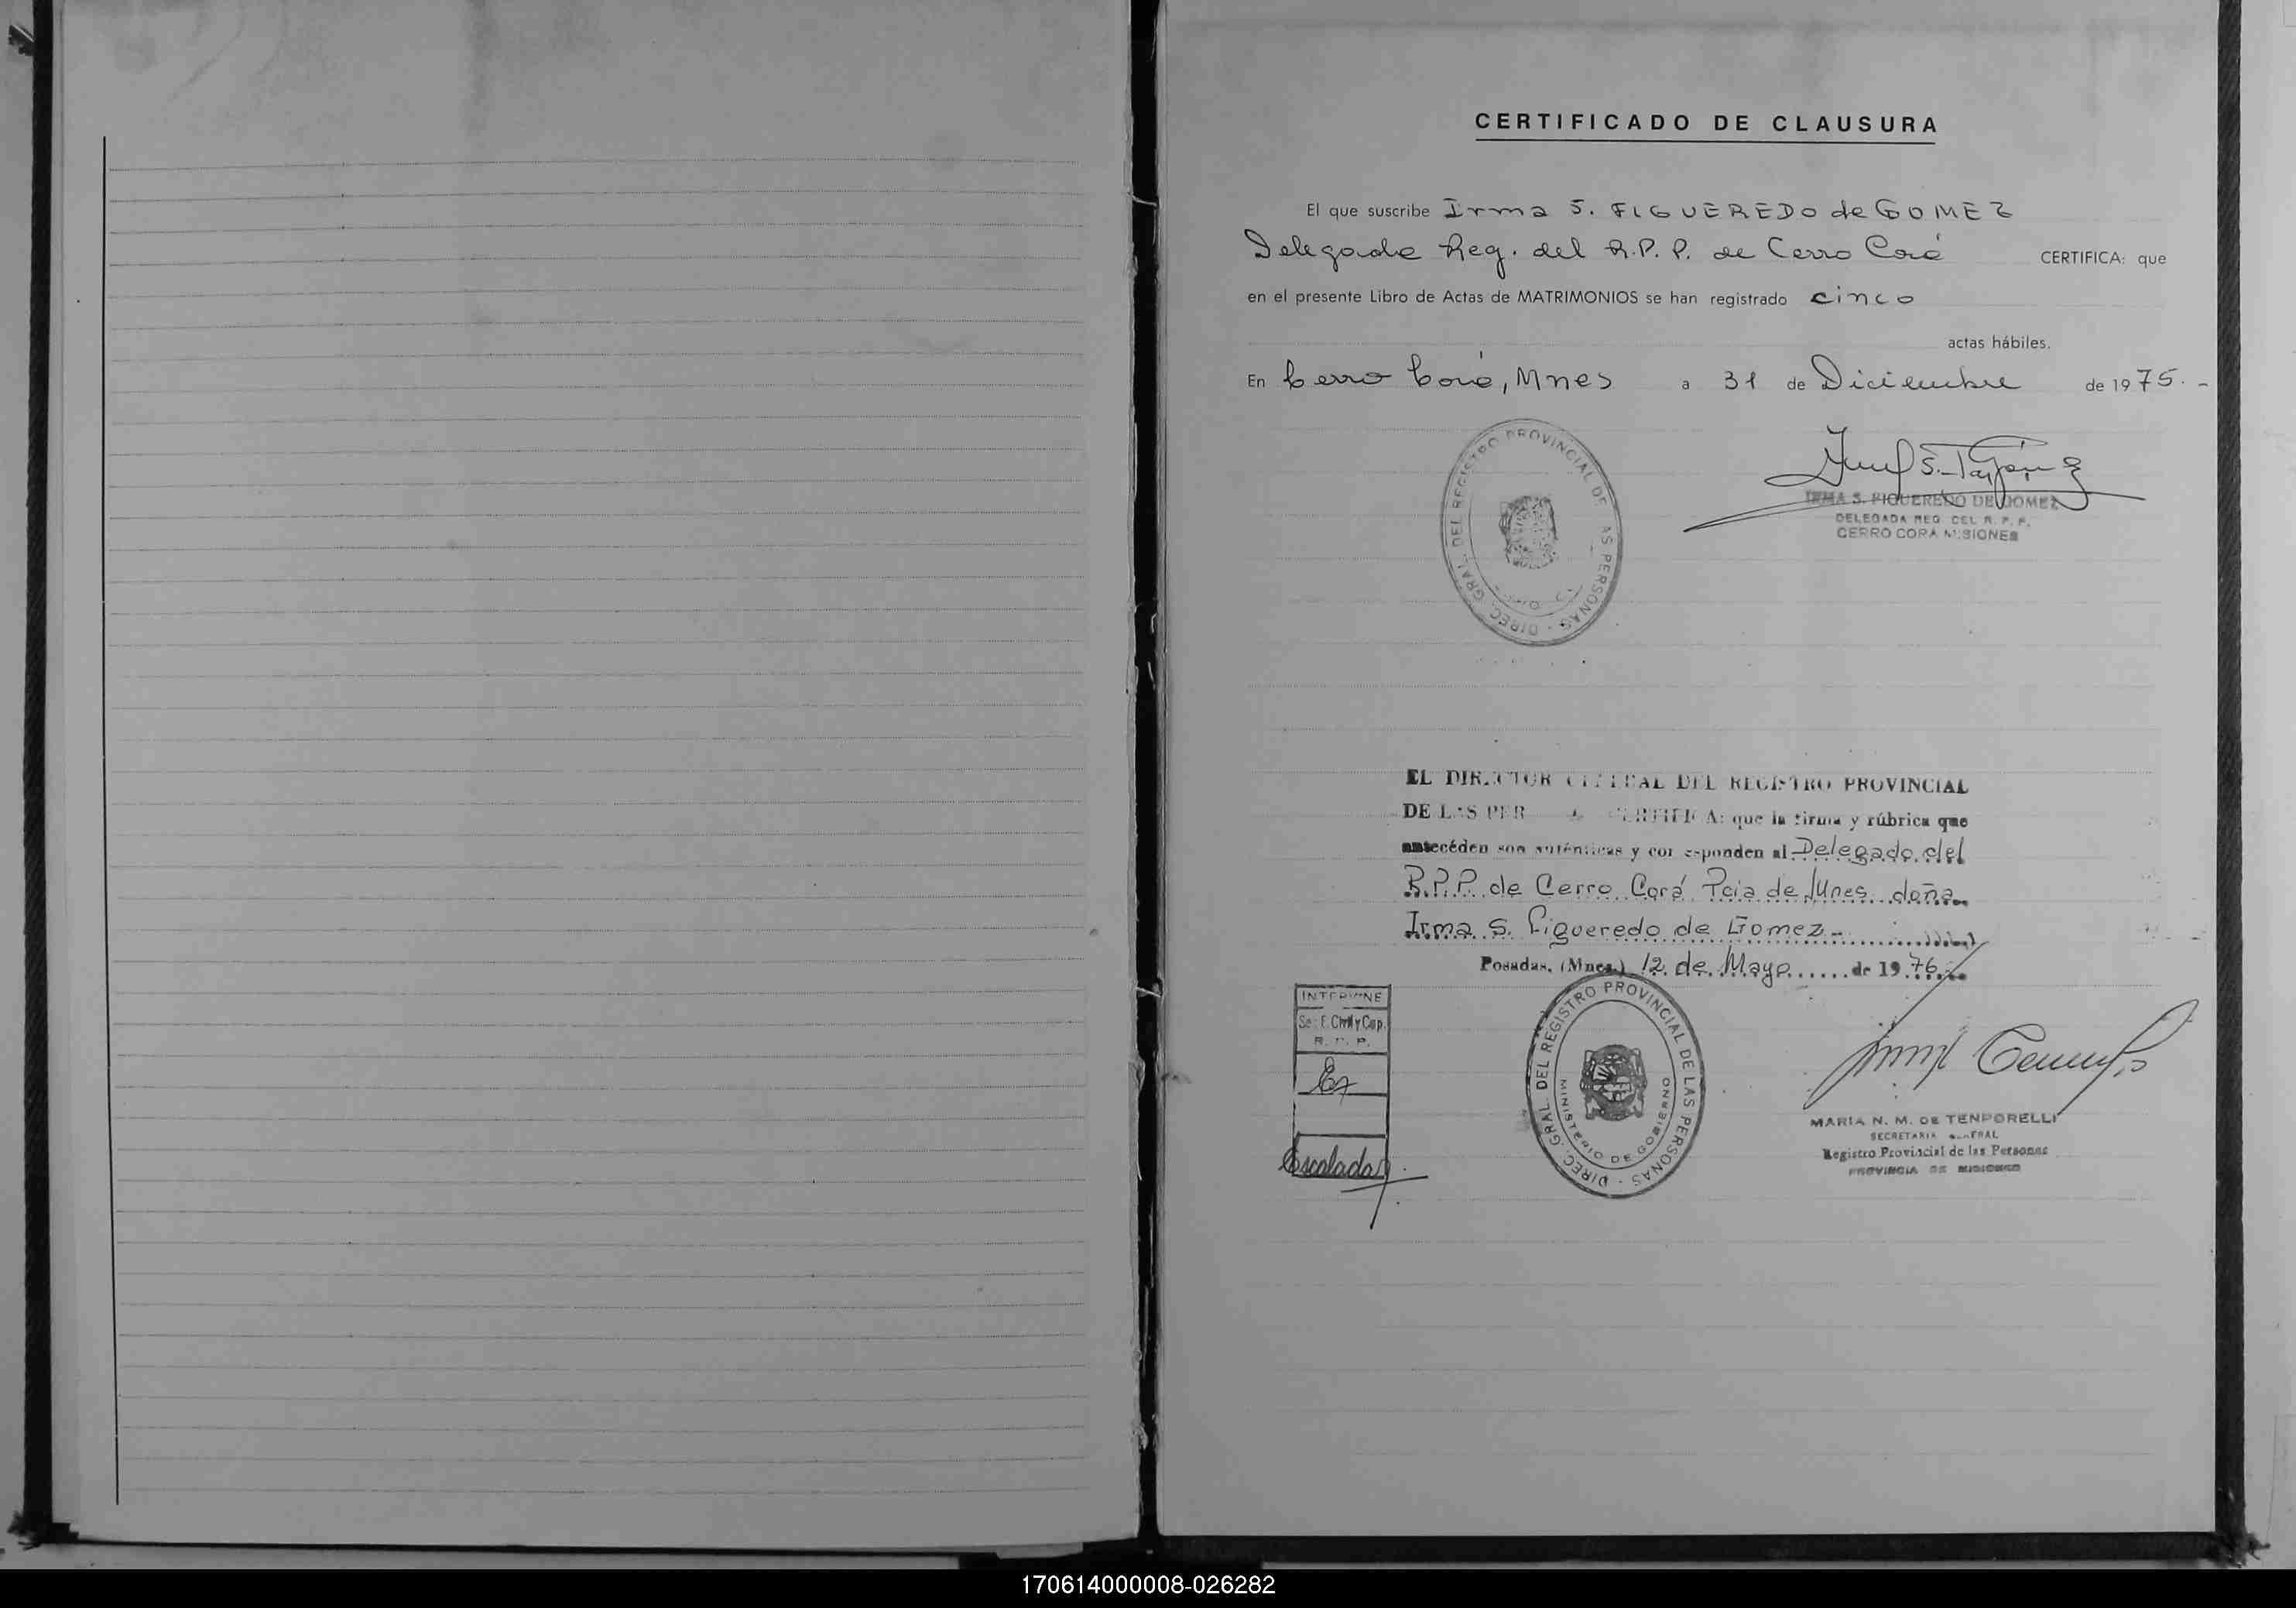 CERTIFICADO DE CLAUSURA
El que suscribe Irma S. FIGUEREDO de GOMEZ
Delegada Reg. del R.P.P. de Cerro Corá CERTIFICA: que
en el presente Libro de Actas de MATRIMONIOS se han registrado cinco
actas hábiles.
En Cerro Corá, Mnes a 31 de Diciembre de 1975.-
DIREC. GRAL. DEL REGISTRO PROVINCIAL DE LAS PERSONAS
IRMA S. FIGUEREDO DE GOMEZ
DELEGADA REG. DEL R. P. P.
CERRO CORA MISIONES
EL DIRECTOR GENERAL DEL REGISTRO PROVINCIAL
DE LAS PER CERTIFICA: que la firma y rúbrica que
antecéden son auténticas y corresponden al Delegado del
R.P.P. de Cerro Corá Pcia de Mnes. doña
Irma S. Figueredo de Gomez-
Posadas, (Mnes.) 12 de Mayo de 1976.-
INTERVINE
Sec. E. Civil y Cap.
R. P. P.
Escalada
DIREC. GRAL. DEL REGISTRO PROVINCIAL DE LAS PERSONAS
MINISTERIO DE GOBIERNO
MARIA N. M. DE TENPORELLI
SECRETARIA GENERAL
Registro Provincial de las Personas
PROVINCIA DE MISIONES
170614000008-026282